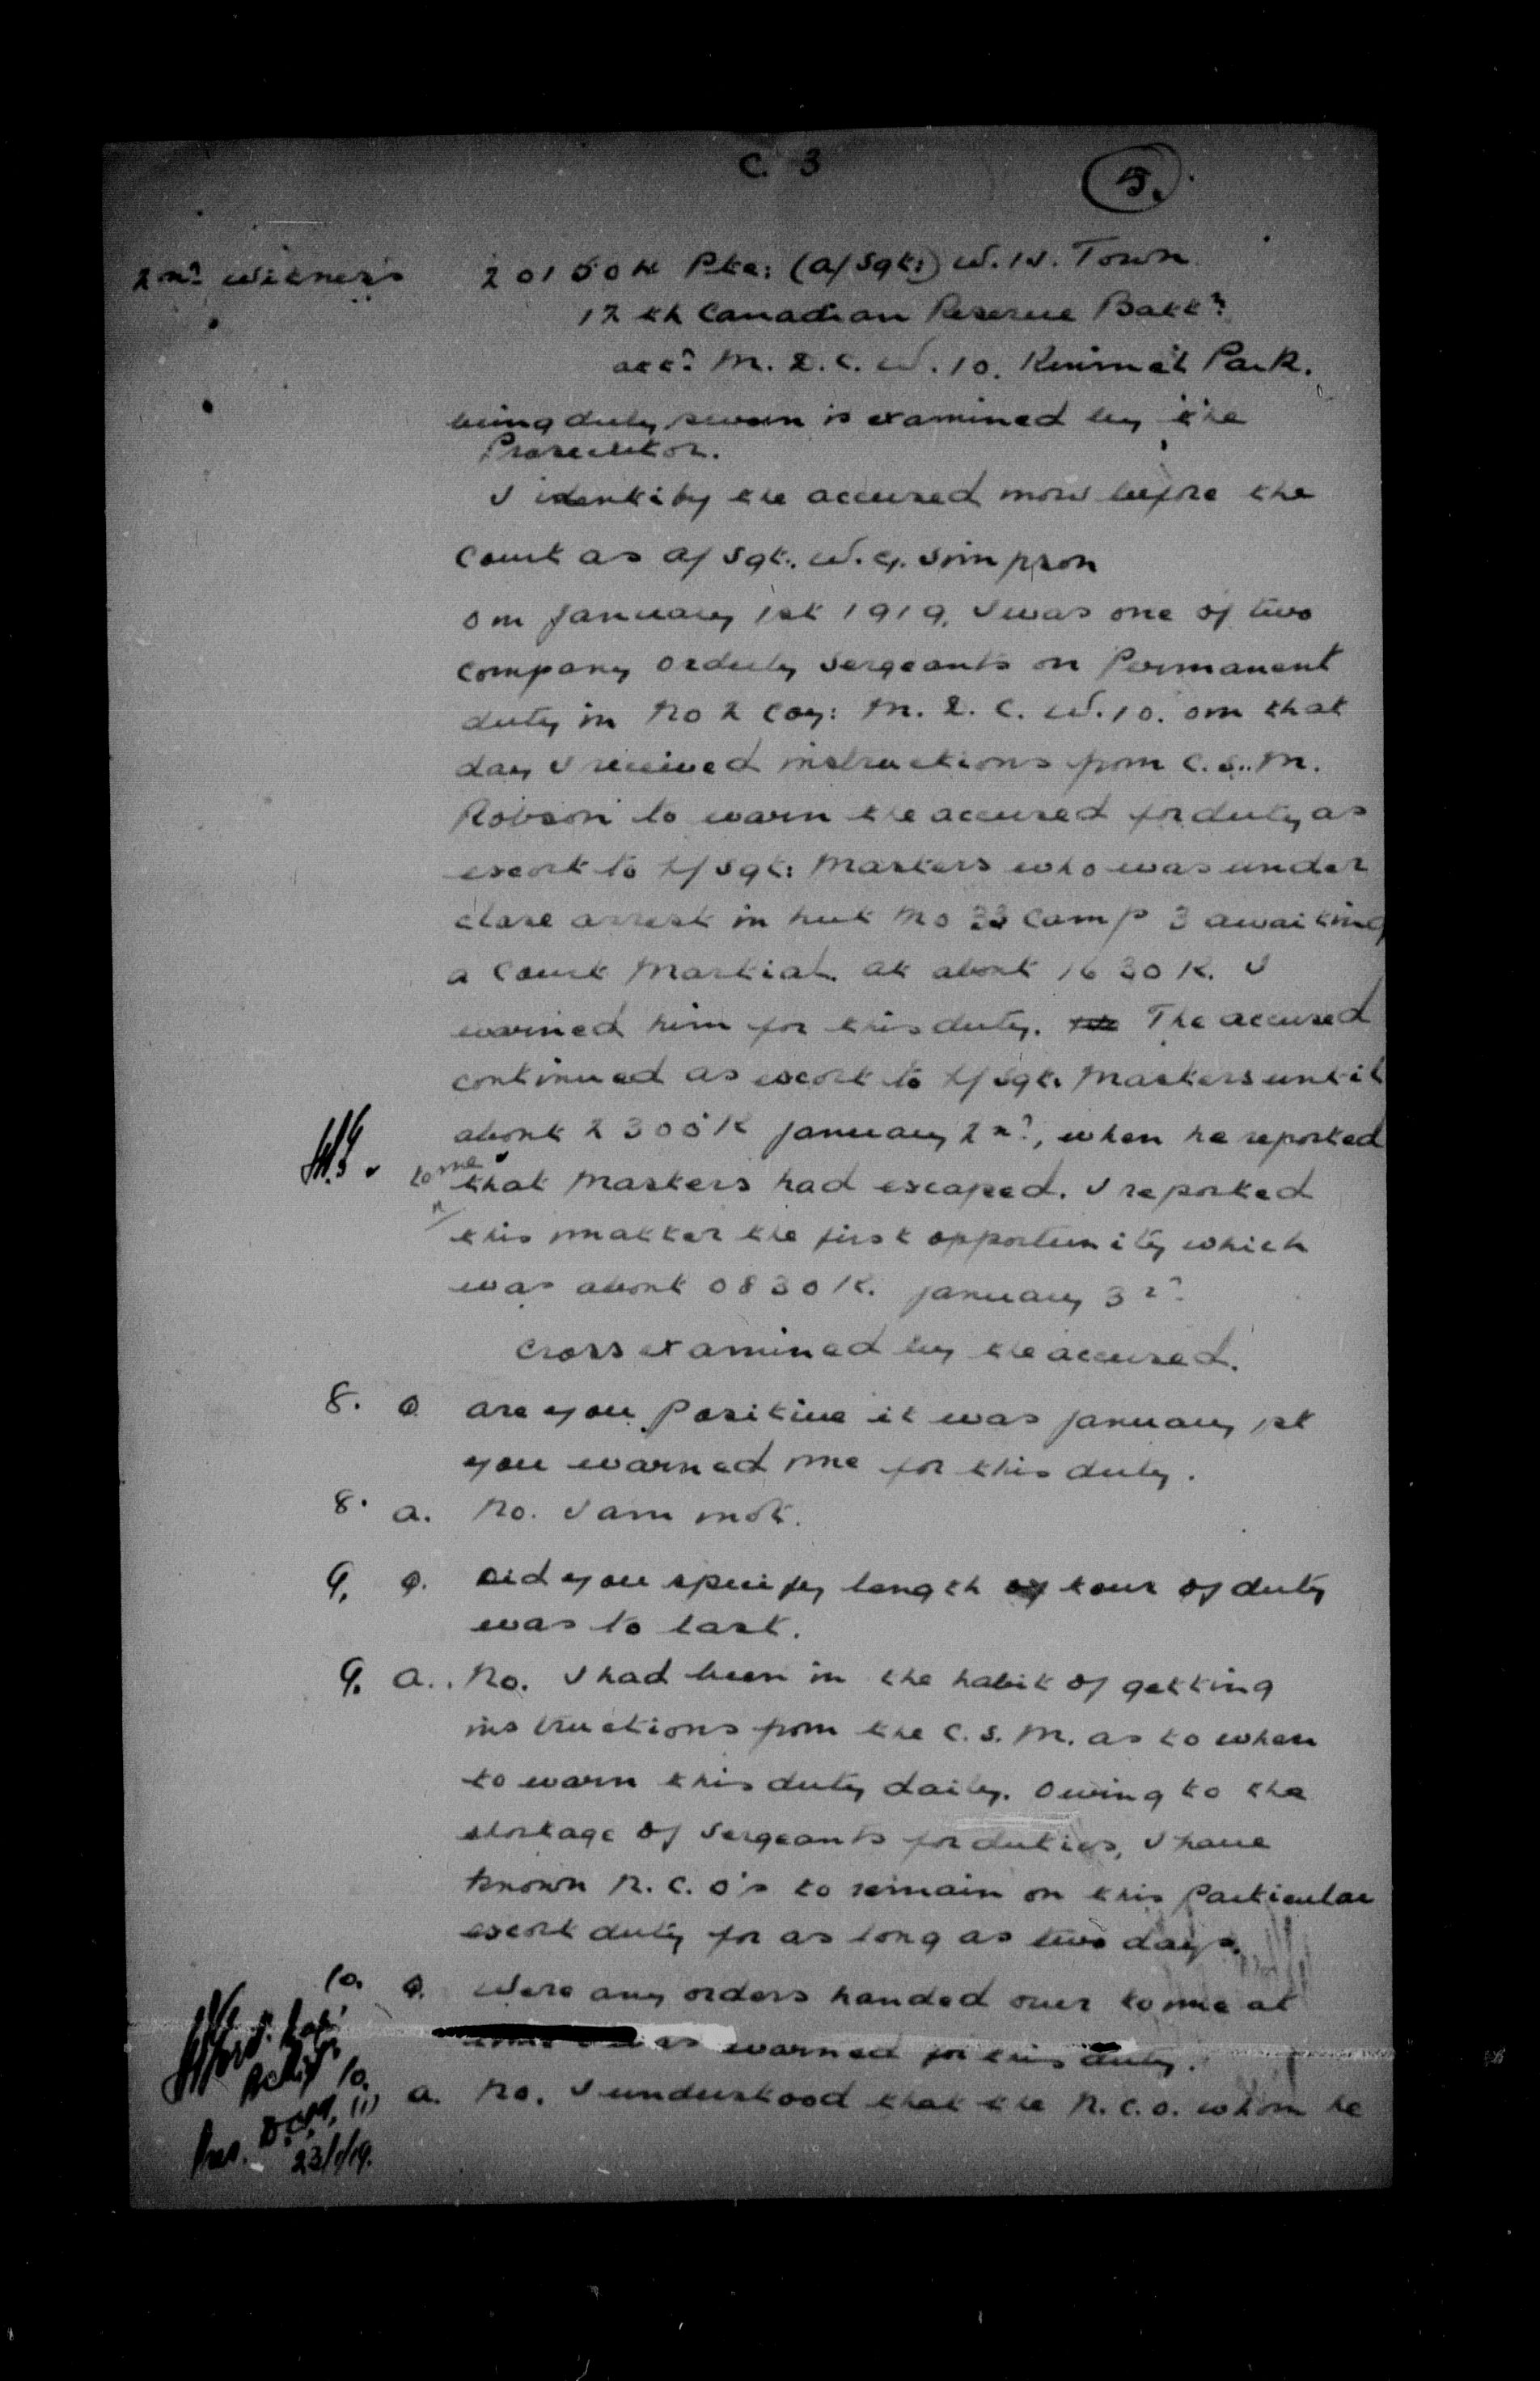 C. 3
5.
2nd Witness
Pte: (a/Sgt:) W. W. Town.
12 th Canadian Reserve Battn
att'd M. D. C. W. 10. Kinmel Park.
being duly sworn is examined by the
Prosecutor.
I identify the accused now before the
Court as a/Sgt. W. G. Simpson
On January 1st 1919, I was one of two
Company Orderly Sergeants on Permanent
duty in No 2 Coy: M. D. C. W. 10. on that
day I received instructions from C. S. M.
Robson to warn the accused for duty as
escort to L/Sgt: Masters who was under
close arrest in hut No 33 Camp 3 awaiting
a Court Martial. at about 16 30 K. I
warned him for this duty. The accused
continued as escort to L/Sgt. Masters until
about 2300 K January 2nd, when he reported
to me
that Masters had escaped. I reported
this matter the first opportunity which
was about 0830 K. January 3rd
Cross examined by the accused.
8. Q are you positive it was January 1st
you warned me for this duty.
8. a. No. I am not.
9. Q. Did you specify length tour of duty
was to last.
9. a.. No. I had been in the habit of getting
instructions from the C. S. M. as to when
to warn this duty daily. Owing to the
shortage of Sergeants for duties, I have
known N. C. O's to remain on this particular
escort duty for as long as two days.
10. Q. Were any orders handed over to me at
warned for this duty.
10. a. No. I understood that the N. C. O. whom he
Pres. D.C.M. (1)
23/1/19.